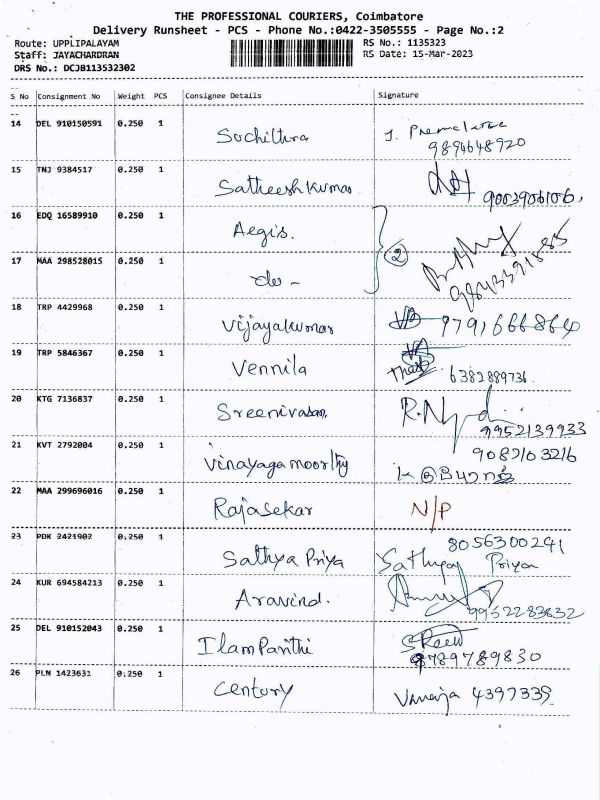 THE PROFESSIONAL COURIERS, Coimbatore
Delivery Runsheet - PCS - Phone No.:0422-3505555 - Page No.:2
Route: UPPLIPALAYAM RS No.: 1135323
Staff: JAYACHARDRAN RS Date: 15-Mar-2023
DRS No.: DCJB113532302
S No Consignment No Weight PCS Consignee Details Signature
14 DEL 910150591 0.250 1 Suchithra J. Premalatha
9894648920
15 TNJ 9384517 0.250 1 Satheesh kumar 9003906106,
16 EDQ 16589910 0.250 1 Aegis.
17 MAA 298528015 0.250 1 do - 2
18 TRP 4429968 0.250 1 Vijayakumar 9791666864
19 TRP 5846367 0.250 1 Vennila 6382889736.
20 KTG 7136837 0.250 1 Sreenivasan,
9952139933
21 KVT 2792004 0.250 1 Vinayagamoorthy 9087103216
22 MAA 299696016 0.250 1 Rajasekar N/P
23 PDK 2421902 0.250 1 Sathya Priya 8056300241
Sathya Priya
24 KUR 694584213 0.250 1 Aravind. 9952283832
25 DEL 910152043 0.250 1 Ilam Parithi
9789789830
26 PLN 1423631 0.250 1 Century Vanaja 4397339